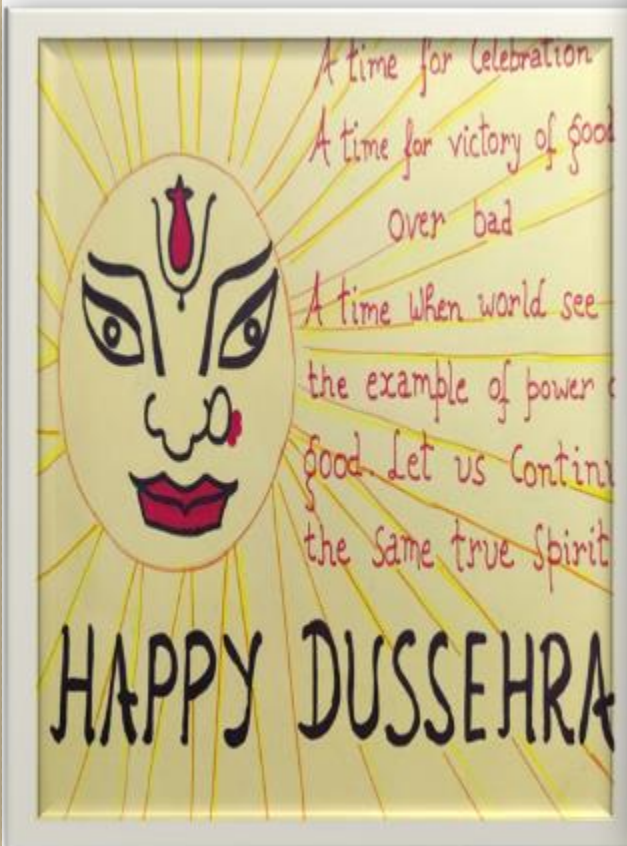 A time for Celebration
A time for victory of good
over bad
A time when world see
the example of power
good. Let us Continu
the same true Spirit
HAPPY DUSSEHRA